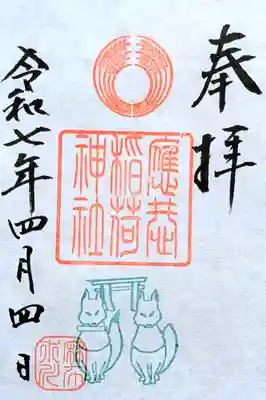 奉拝
應
稲荷
神社
令和七年四月四日